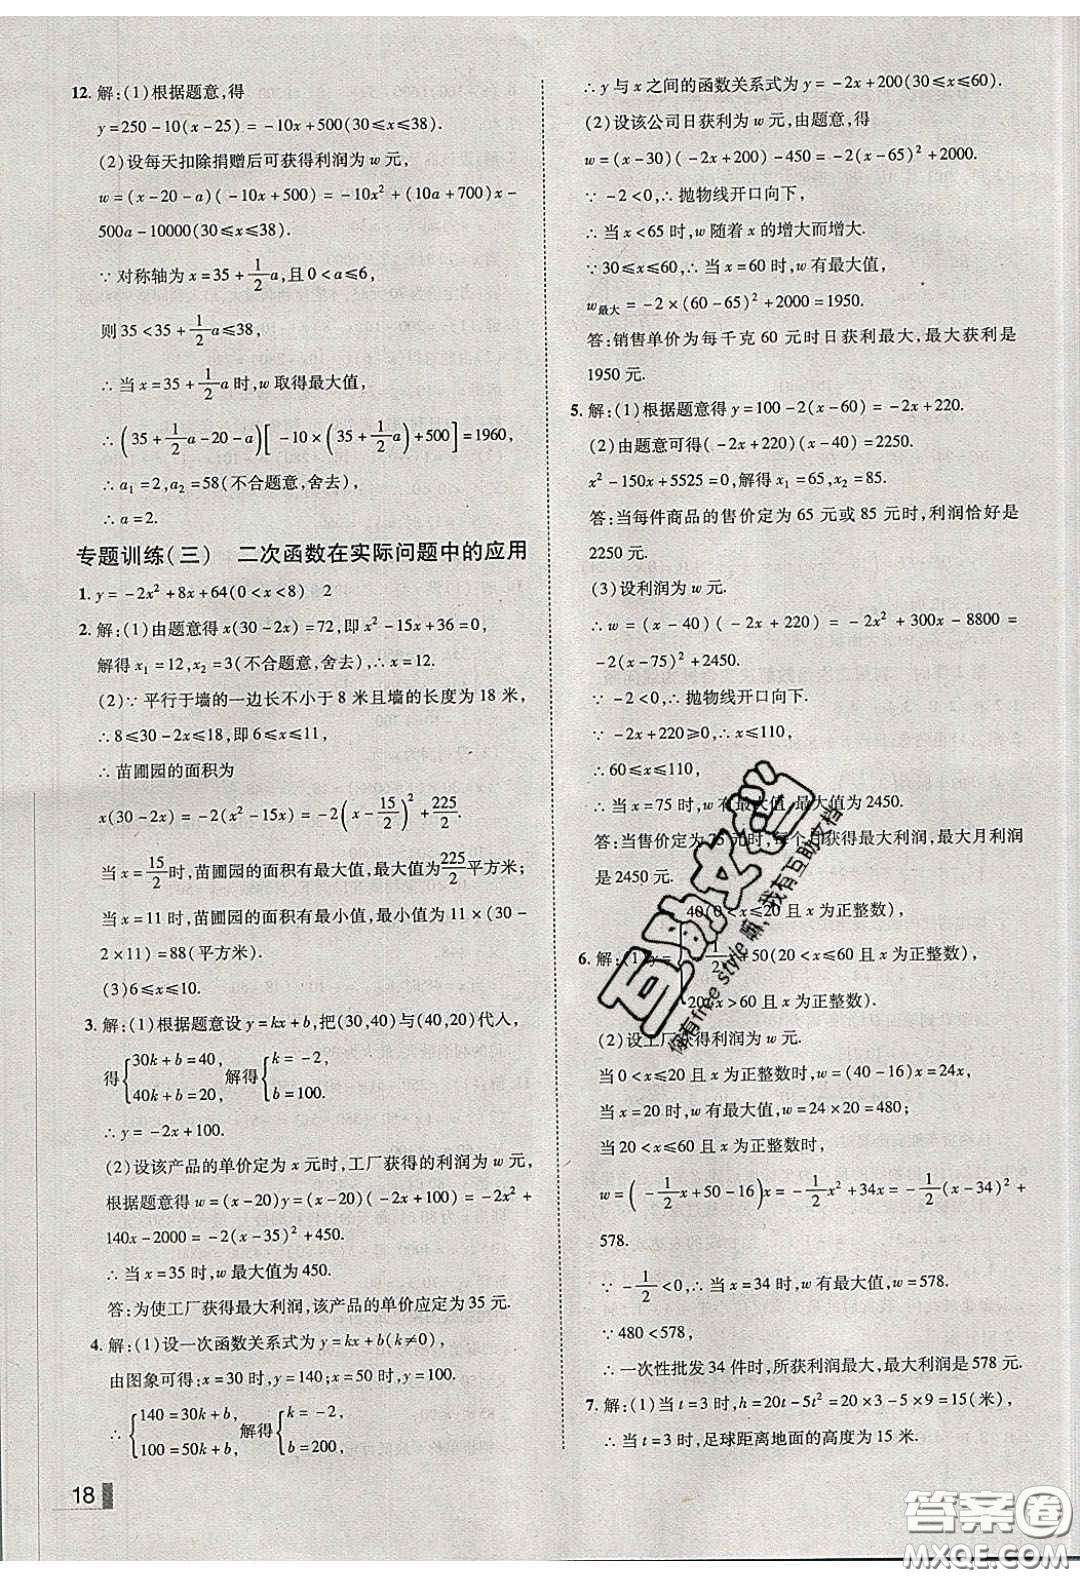 12. 解:(1)根据题意,得
y=250-10(x-25)=-10x+500(30≤x≤38).
(2)设每天扣除捐赠后可获得利润为 w 元,
w=(x-20-a)(-10x+500)=-10x²+(10a+700)x-
500a-10000(30≤x≤38).
∵对称轴为 x=35+1/2a,且 0<a≤6,
则 35<35+1/2a≤38,
∴当 x=35+1/2a 时,w 取得最大值,
∴(35+1/2a-20-a)[-10×(35+1/2a)+500]=1960,
∴a₁=2,a₂=58(不合题意,舍去),
∴a=2.
专题训练(三) 二次函数在实际问题中的应用
1. y=-2x²+8x+64(0<x<8) 2
2. 解:(1)由题意得 x(30-2x)=72,即 x²-15x+36=0,
解得 x₁=12,x₂=3(不合题意,舍去),∴x=12.
(2)∵平行于墙的一边长不小于 8 米且墙的长度为 18 米,
∴8≤30-2x≤18,即 6≤x≤11,
∴苗圃园的面积为
x(30-2x)=-2(x²-15x)=-2(x-15/2)²+225/2.
当 x=15/2时,苗圃园的面积有最大值,最大值为225/2平方米;
当 x=11 时,苗圃园的面积有最小值,最小值为 11×(30-
2×11)=88(平方米).
(3)6≤x≤10.
3. 解:(1)根据题意设 y=kx+b,把(30,40)与(40,20)代人,
得{30k+b=40, 40k+b=20, 解得{k=-2, b=100.
∴y=-2x+100.
(2)设该产品的单价定为 x 元时,工厂获得的利润为 w 元,
根据题意得 w=(x-20)y=(x-20)(-2x+100)=-2x²+
140x-2000=-2(x-35)²+450.
∴当 x=35 时,w 最大值为 450.
答:为使工厂获得最大利润,该产品的单价应定为 35 元.
4. 解:(1)设一次函数关系式为 y=kx+b(k≠0),
由图象可得:x=30 时,y=140;x=50 时,y=100.
∴{140=30k+b, 100=50k+b, 解得{k=-2, b=200,
18
∴y 与 x 之间的函数关系式为 y=-2x+200(30≤x≤60).
(2)设该公司日获利为 w 元,由题意,得
w=(x-30)(-2x+200)-450=-2(x-65)²+2000.
∵-2<0,∴抛物线开口向下,
∴当 x<65 时,w 随着 x 的增大而增大.
∵30≤x≤60,∴当 x=60 时,w 有最大值,
w最大=-2×(60-65)²+2000=1950.
答:销售单价为每千克 60 元时日获利最大,最大获利是
1950 元.
5. 解:(1)根据题意得 y=100-2(x-60)=-2x+220.
(2)由题意可得(-2x+220)(x-40)=2250.
x²-150x+5525=0,解得 x₁=65,x₂=85.
答:当每件商品的售价定为 65 元或 85 元时,利润恰好是
2250 元.
(3)设利润为 w 元.
∴w=(x-40)(-2x+220)=-2x²+300x-8800=
-2(x-75)²+2450.
∵-2<0,∴抛物线开口向下.
∵-2x+220≥0,∴x≤110,
∴60≤x≤110.
∴当 x=75 时,w 有最大值,最大值为 2450.
答:当售价定为 75 元时,每个月获得最大利润,最大月利润
是 2450 元.
6. 解:(1)y={40(0<x≤20 且 x 为正整数),
-1/2x+50(20<x≤60 且 x 为正整数),
20(x>60 且 x 为正整数).
(2)设工厂获得利润为 w 元.
当 0<x≤20 且 x 为正整数时,w=(40-16)x=24x,
当 x=20 时,w 有最大值,w=24×20=480;
当 20<x≤60 且 x 为正整数时,
w=(-1/2x+50-16)x=-1/2x²+34x=-1/2(x-34)²+
578.
∵-1/2<0,∴当 x=34 时,w 有最大值,w=578.
∵480<578,
∴一次性批发 34 件时,所获利润最大,最大利润是 578 元.
7. 解:(1)当 t=3 时,h=20t-5t²=20×3-5×9=15(米),
∴当 t=3 时,足球距离地面的高度为 15 米.
互助文档
你有free style 嘛,我有互助文档
答案圈
MXQE.COM